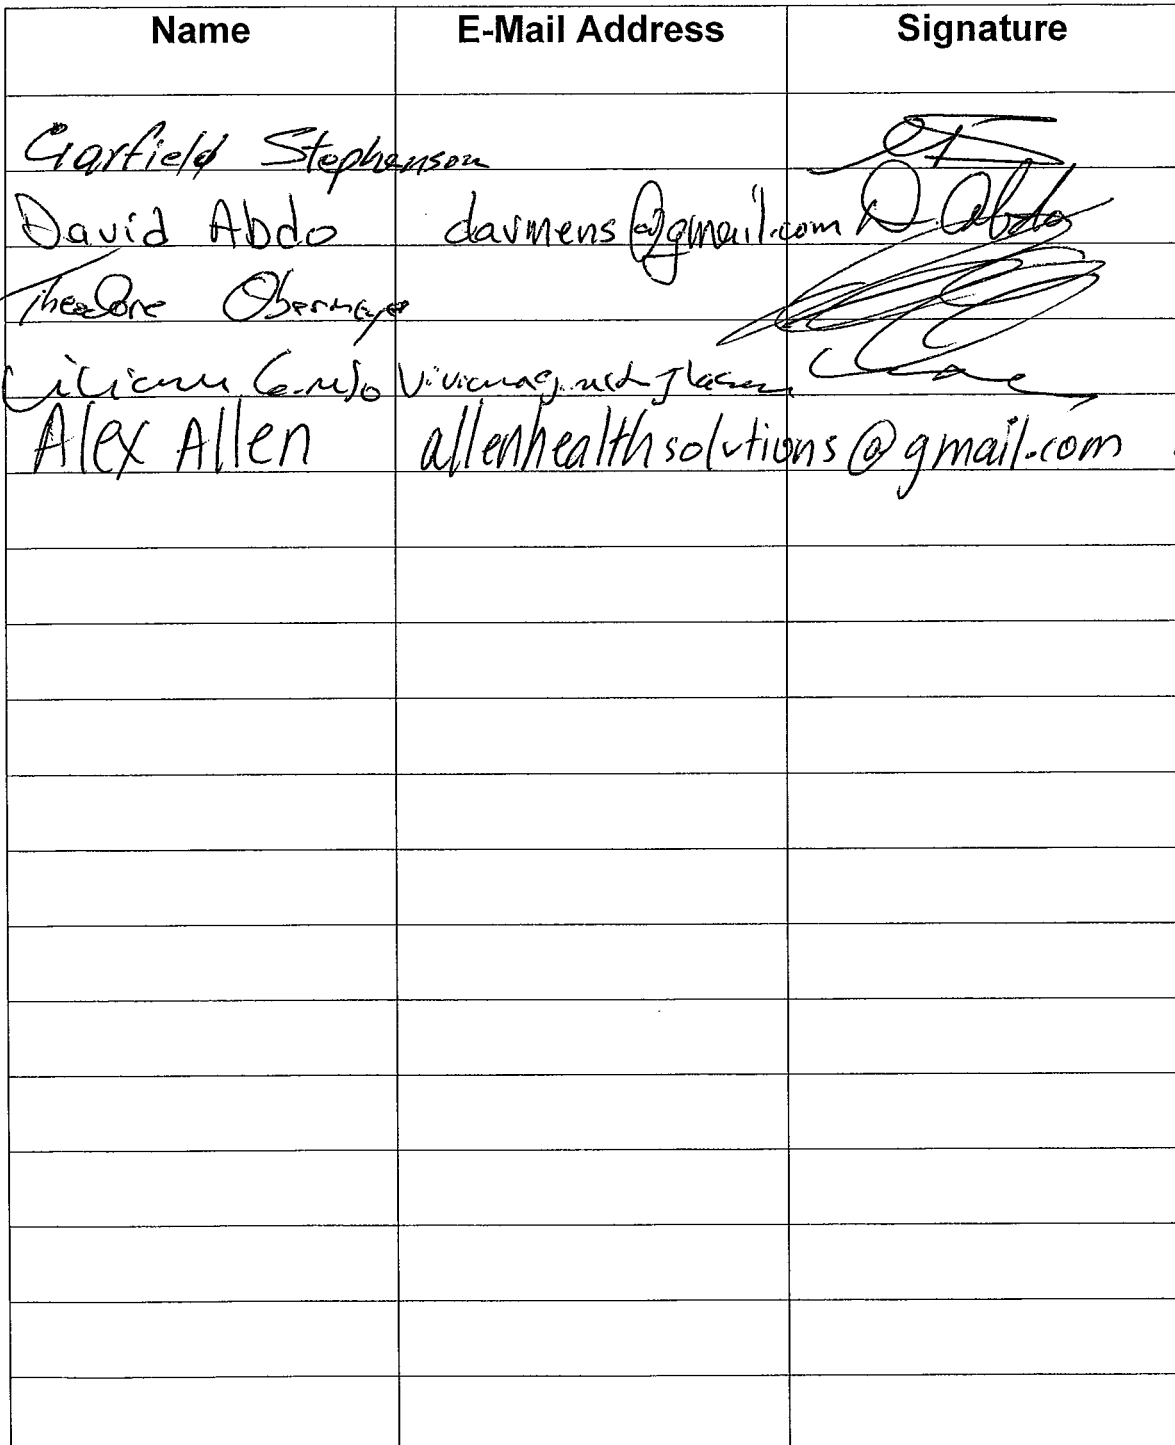 Name E-Mail Address Signature
Garfield Stephenson
David Abdo davmens@gmail.com D Abdo
Theodore Obermeyer
Alex Allen allenhealthsolutions@gmail.com